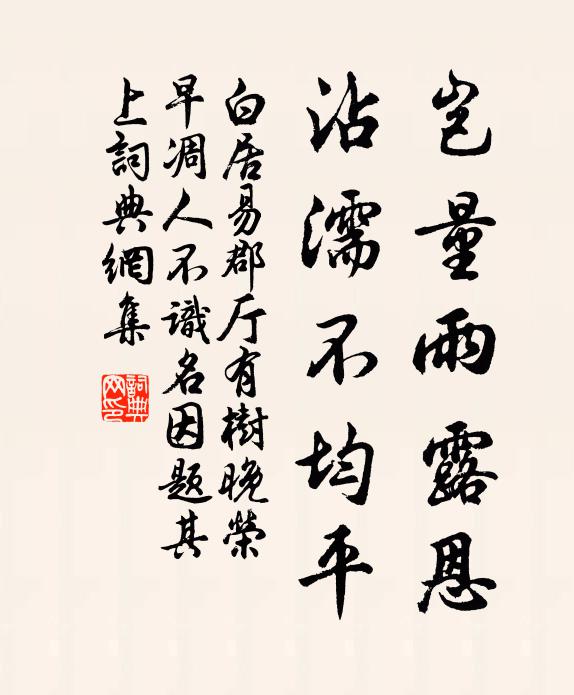 岂量雨露恩
沾濡不均平
白居易郡厅有樹晚榮
早凋人不識名因题其
上詞典網集
詞典
网印